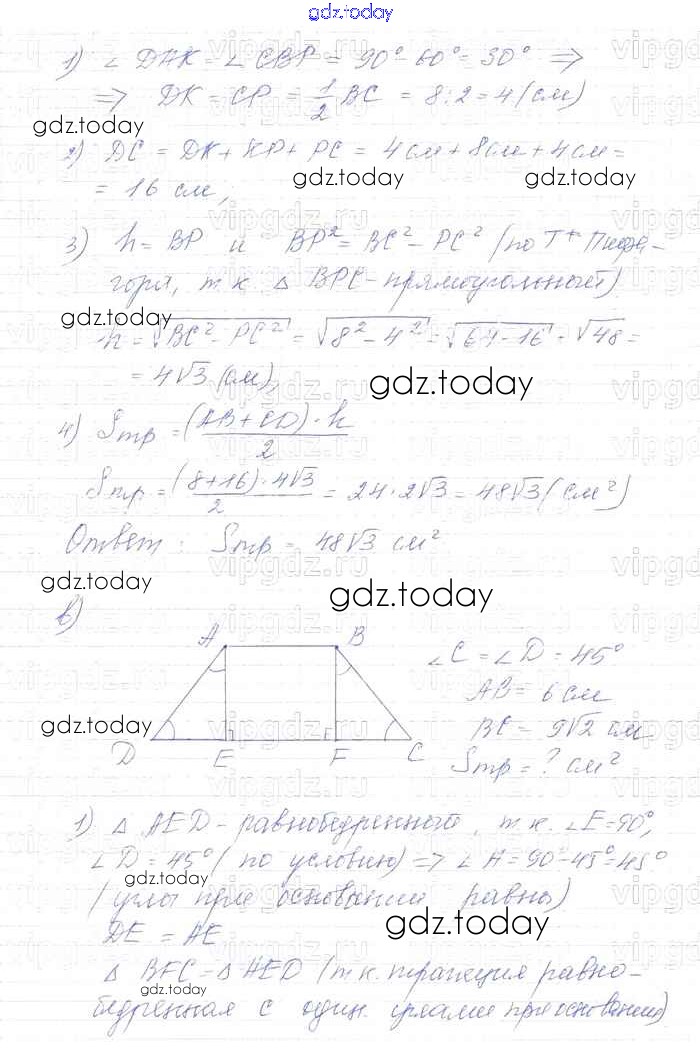 gdz.today
1) ∠ DAK = ∠ CBP = 90° - 60° = 30° ⇒
⇒ DK = CP = 1/2 BC = 8:2 = 4 (см)
gdz.today
2) DC = DK + KP + PC = 4см + 8см + 4см =
= 16 см,
gdz.today
gdz.today
3) h = BP и BP² = BC² - PC² (по Т+ Пифа-
гора, т.к. △ BPC - прямоугольный)
gdz.today
h = √BC² - PC² = √8² - 4² = √64 - 16 = √48 =
= 4√3 (см),
gdz.today
4) Sтр = (AB + CD) · h / 2
Sтр = (8+16) · 4√3 / 2 = 24 · 2√3 = 48√3 (см²)
Ответ: Sтр = 48√3 см²
gdz.today
gdz.today
в)
A B
∠C = ∠D = 45°
AB = 6 см
gdz.today
BC = 9√2 см
D E F C
Sтр = ? см²
1) △ AED - равнобедренный, т.к. ∠E = 90°,
∠D = 45° (по условию) ⇒ ∠A = 90° - 45° = 45°
gdz.today
(углы при основании равны)
gdz.today
DE = AE
△ BFC = △ AED (т.к. трапеция равно-
gdz.today
бедренная с один. углами при основании)
vipgdz.ru